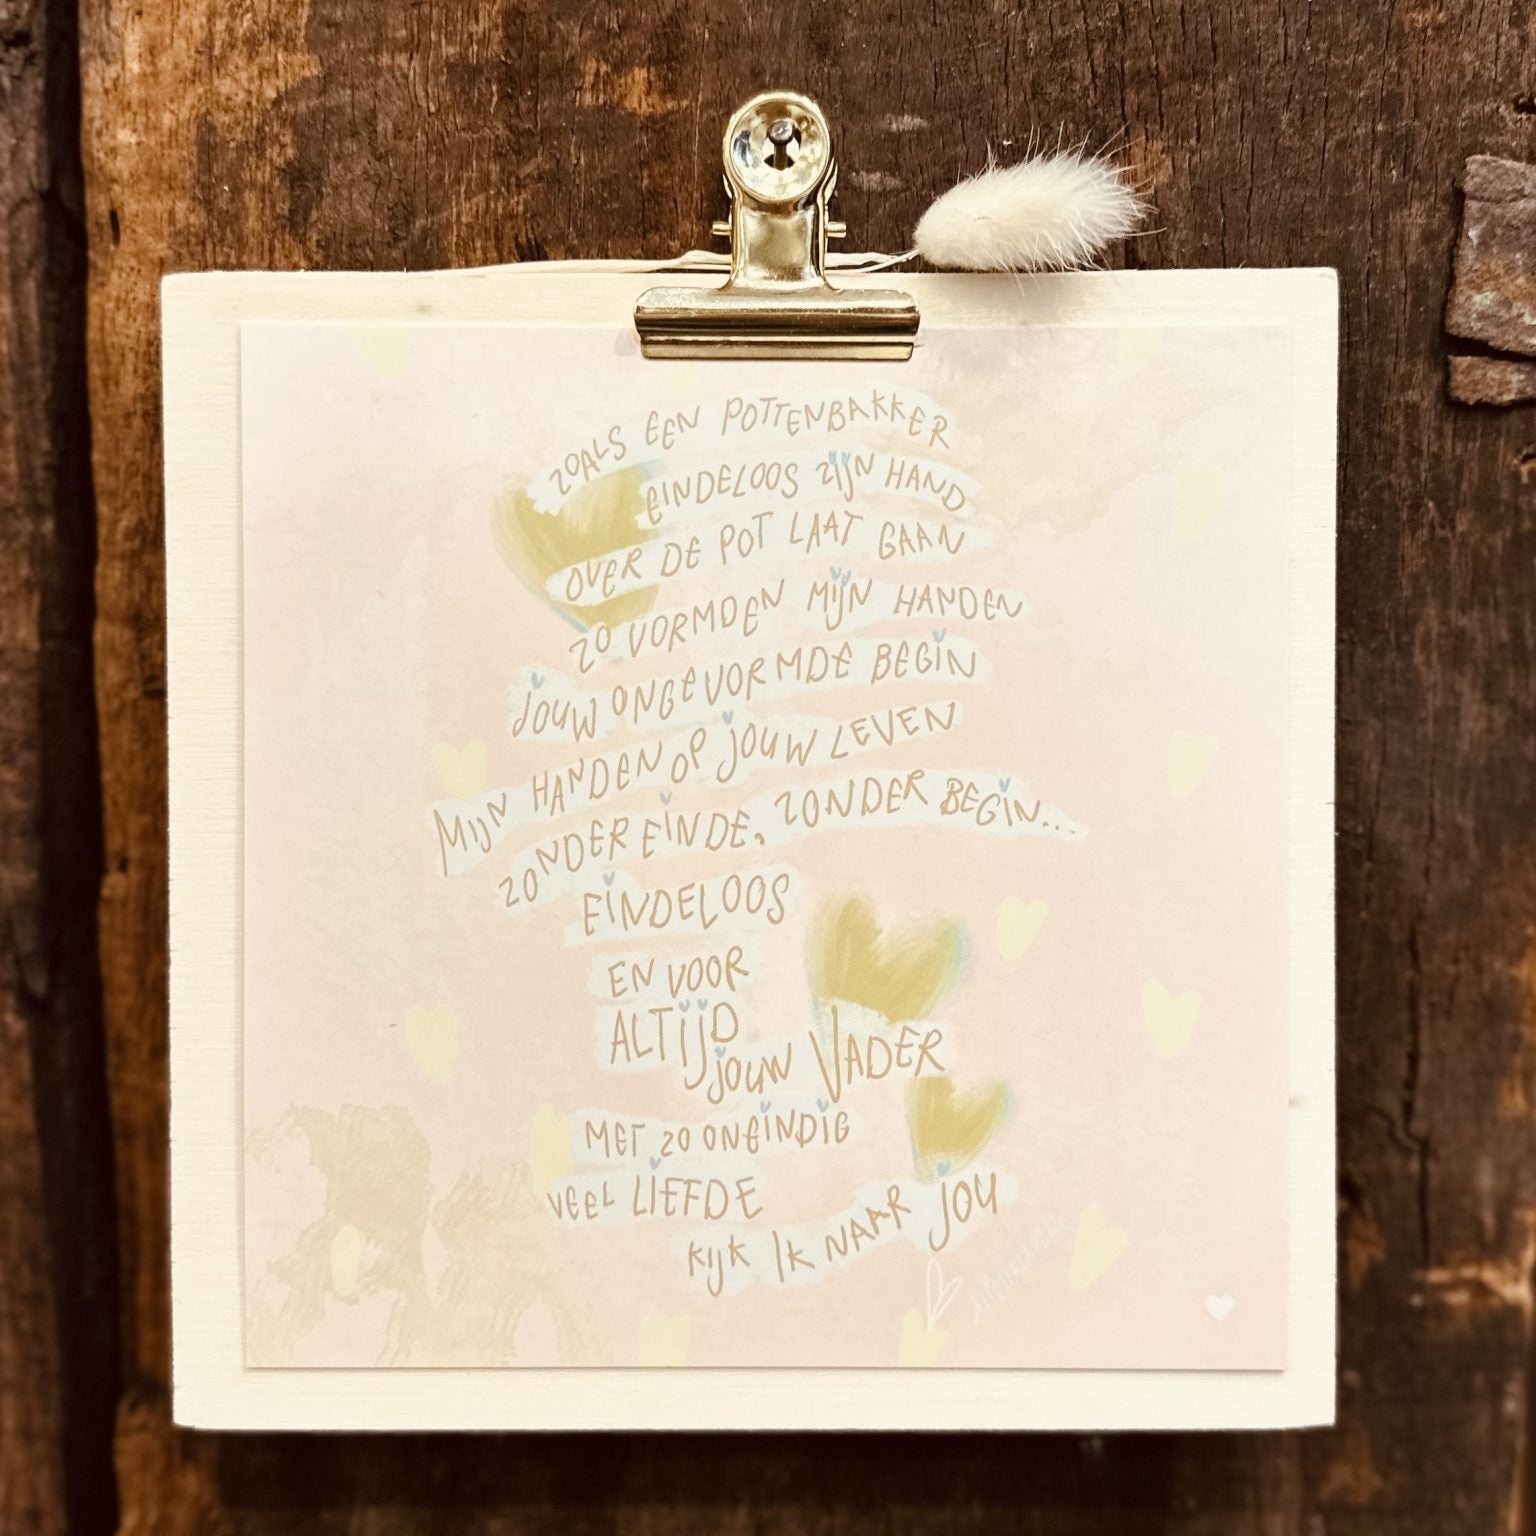 ZOALS EEN POTTENBAKKER
EINDELOOS ZIJN HAND
OVER DE POT LAAT GAAN
ZO VORMDEN MIJN HANDEN
JOUW ONGEVORMDE BEGIN
MIJN HANDEN OP JOUW LEVEN
ZONDER EINDE, ZONDER BEGIN...
EINDELOOS
EN VOOR
ALTIJD
JOUW VADER
MET ZO ONEINDIG
VEEL LIEFDE
KIJK IK NAAR JOU